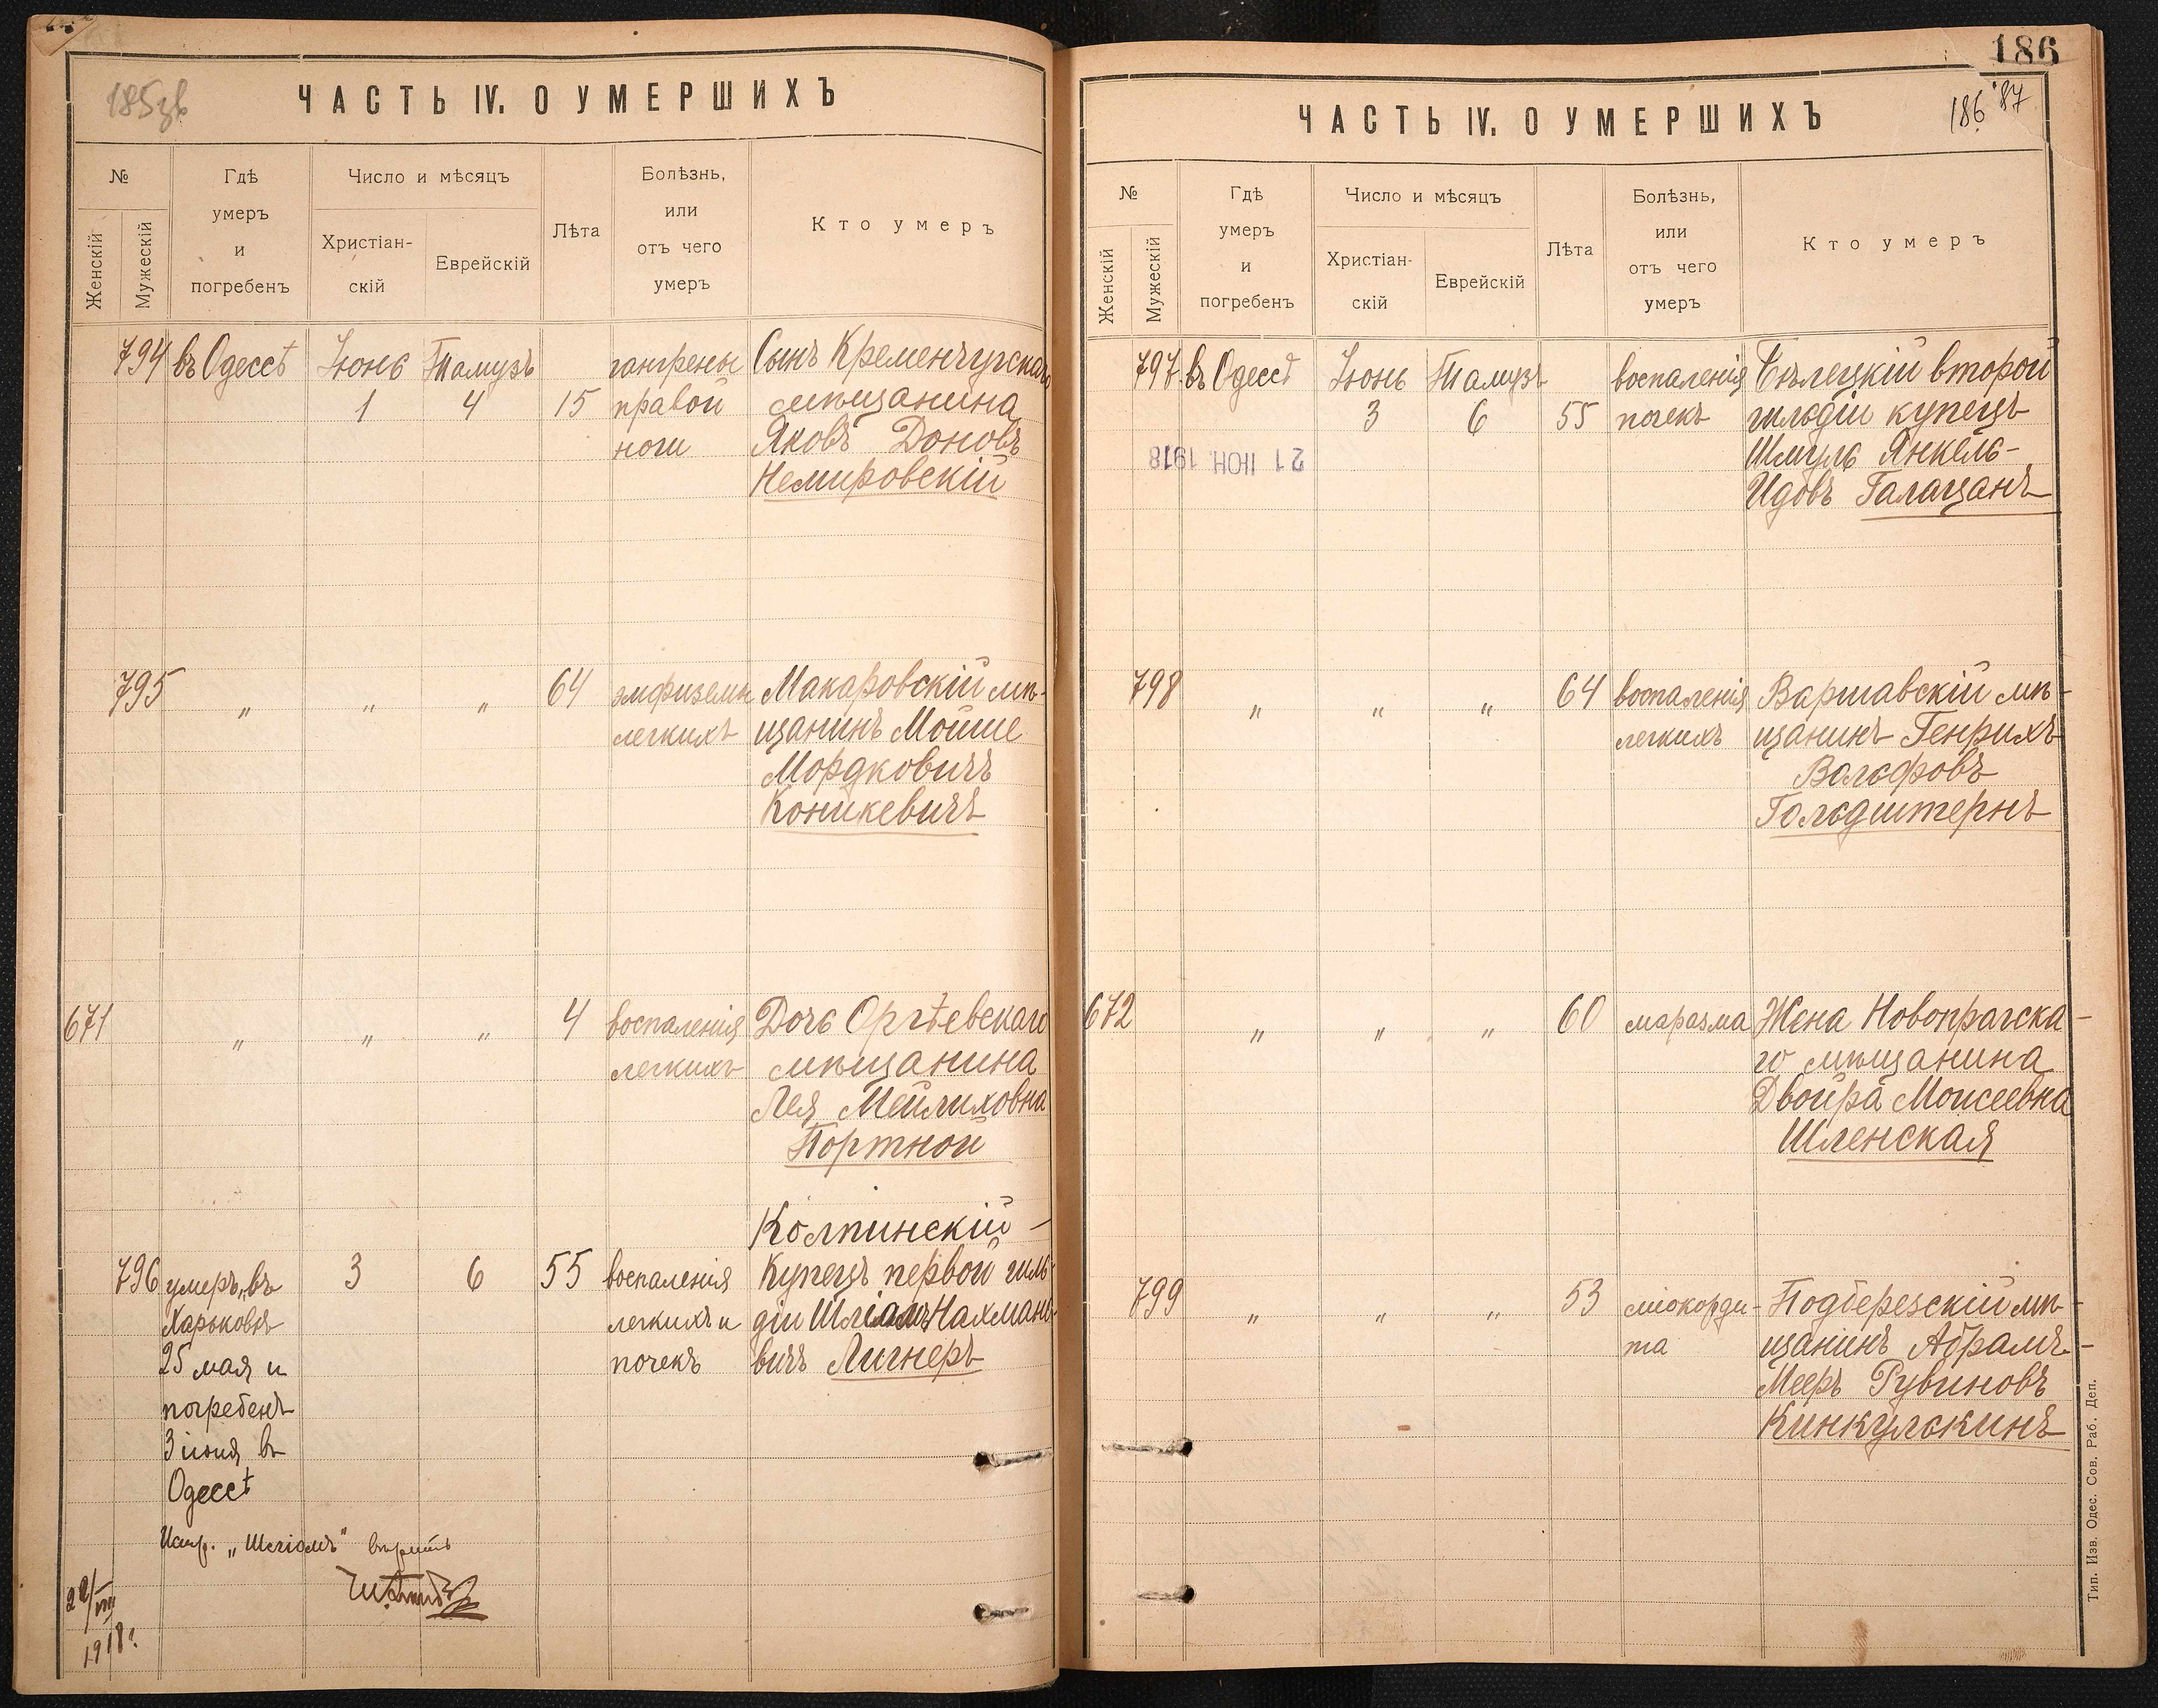 185зв
ЧАСТЬ IV. О УМЕРШИХЪ
№
Женскій
Мужескій
Гдѣ
умеръ
и
погребенъ
Число и мѣсяцъ
Христіан-
скій
Еврейскій
Лѣта
Болѣзнь,
или
отъ чего
умеръ
Кто умеръ
794 въ Одессѣ Іюнь Тамузъ гангрены Сынъ Кременчугскаго
1 4 15 правой мѣщанина
ноги Яковъ Доновъ
Немировскій
795 „ „ „ 64 эмфиземы Макаровскій мѣ-
легкихъ щанинъ Мойше
Мордковичъ
Коникевичъ
671 „ „ „ 4 воспаленія Дочь Оргѣевскаго
легкихъ мѣщанина
Лея Мейлиховна
Портной
Колпинскій -
796 умеръ въ 3 6 55 воспаленія Купецъ первой гиль-
Харьковѣ легкихъ и діи Шліомъ Нахмано-
25 мая и почекъ вичъ Лигнеръ
погребенъ
3 іюня въ
Одессѣ
Испр. „Шліомъ" вѣрить
22/VIII
1918г.
186
186 87
ЧАСТЬ IV. О УМЕРШИХЪ
№
Женскій
Мужескій
Гдѣ
умеръ
и
погребенъ
Число и мѣсяцъ
Христіан-
скій
Еврейскій
Лѣта
Болѣзнь,
или
отъ чего
умеръ
Кто умеръ
797 въ Одессѣ Іюнь Тамузъ воспаленія Бѣлецкій второй
3 6 55 почекъ гильдіи купецъ
21 ІЮН. 1918 Шмуль Янкель-
Идовъ Галацанъ
798 „ „ „ 64 воспаленія Варшавскій мѣ-
легкихъ щанинъ Генрихъ
Вольфовъ
Гольдштернъ
672 „ „ „ 60 маразма Жена Новопрагска-
го мѣщанина
Двойра Моисеевна
Шленская
799 „ „ „ 53 міокорди- Подберезскій мѣ-
та щанинъ Абрамъ-
Меерь Рувиновъ
Кинкулькинъ
Тип. Изв. Одес. Сов. Раб. Деп.